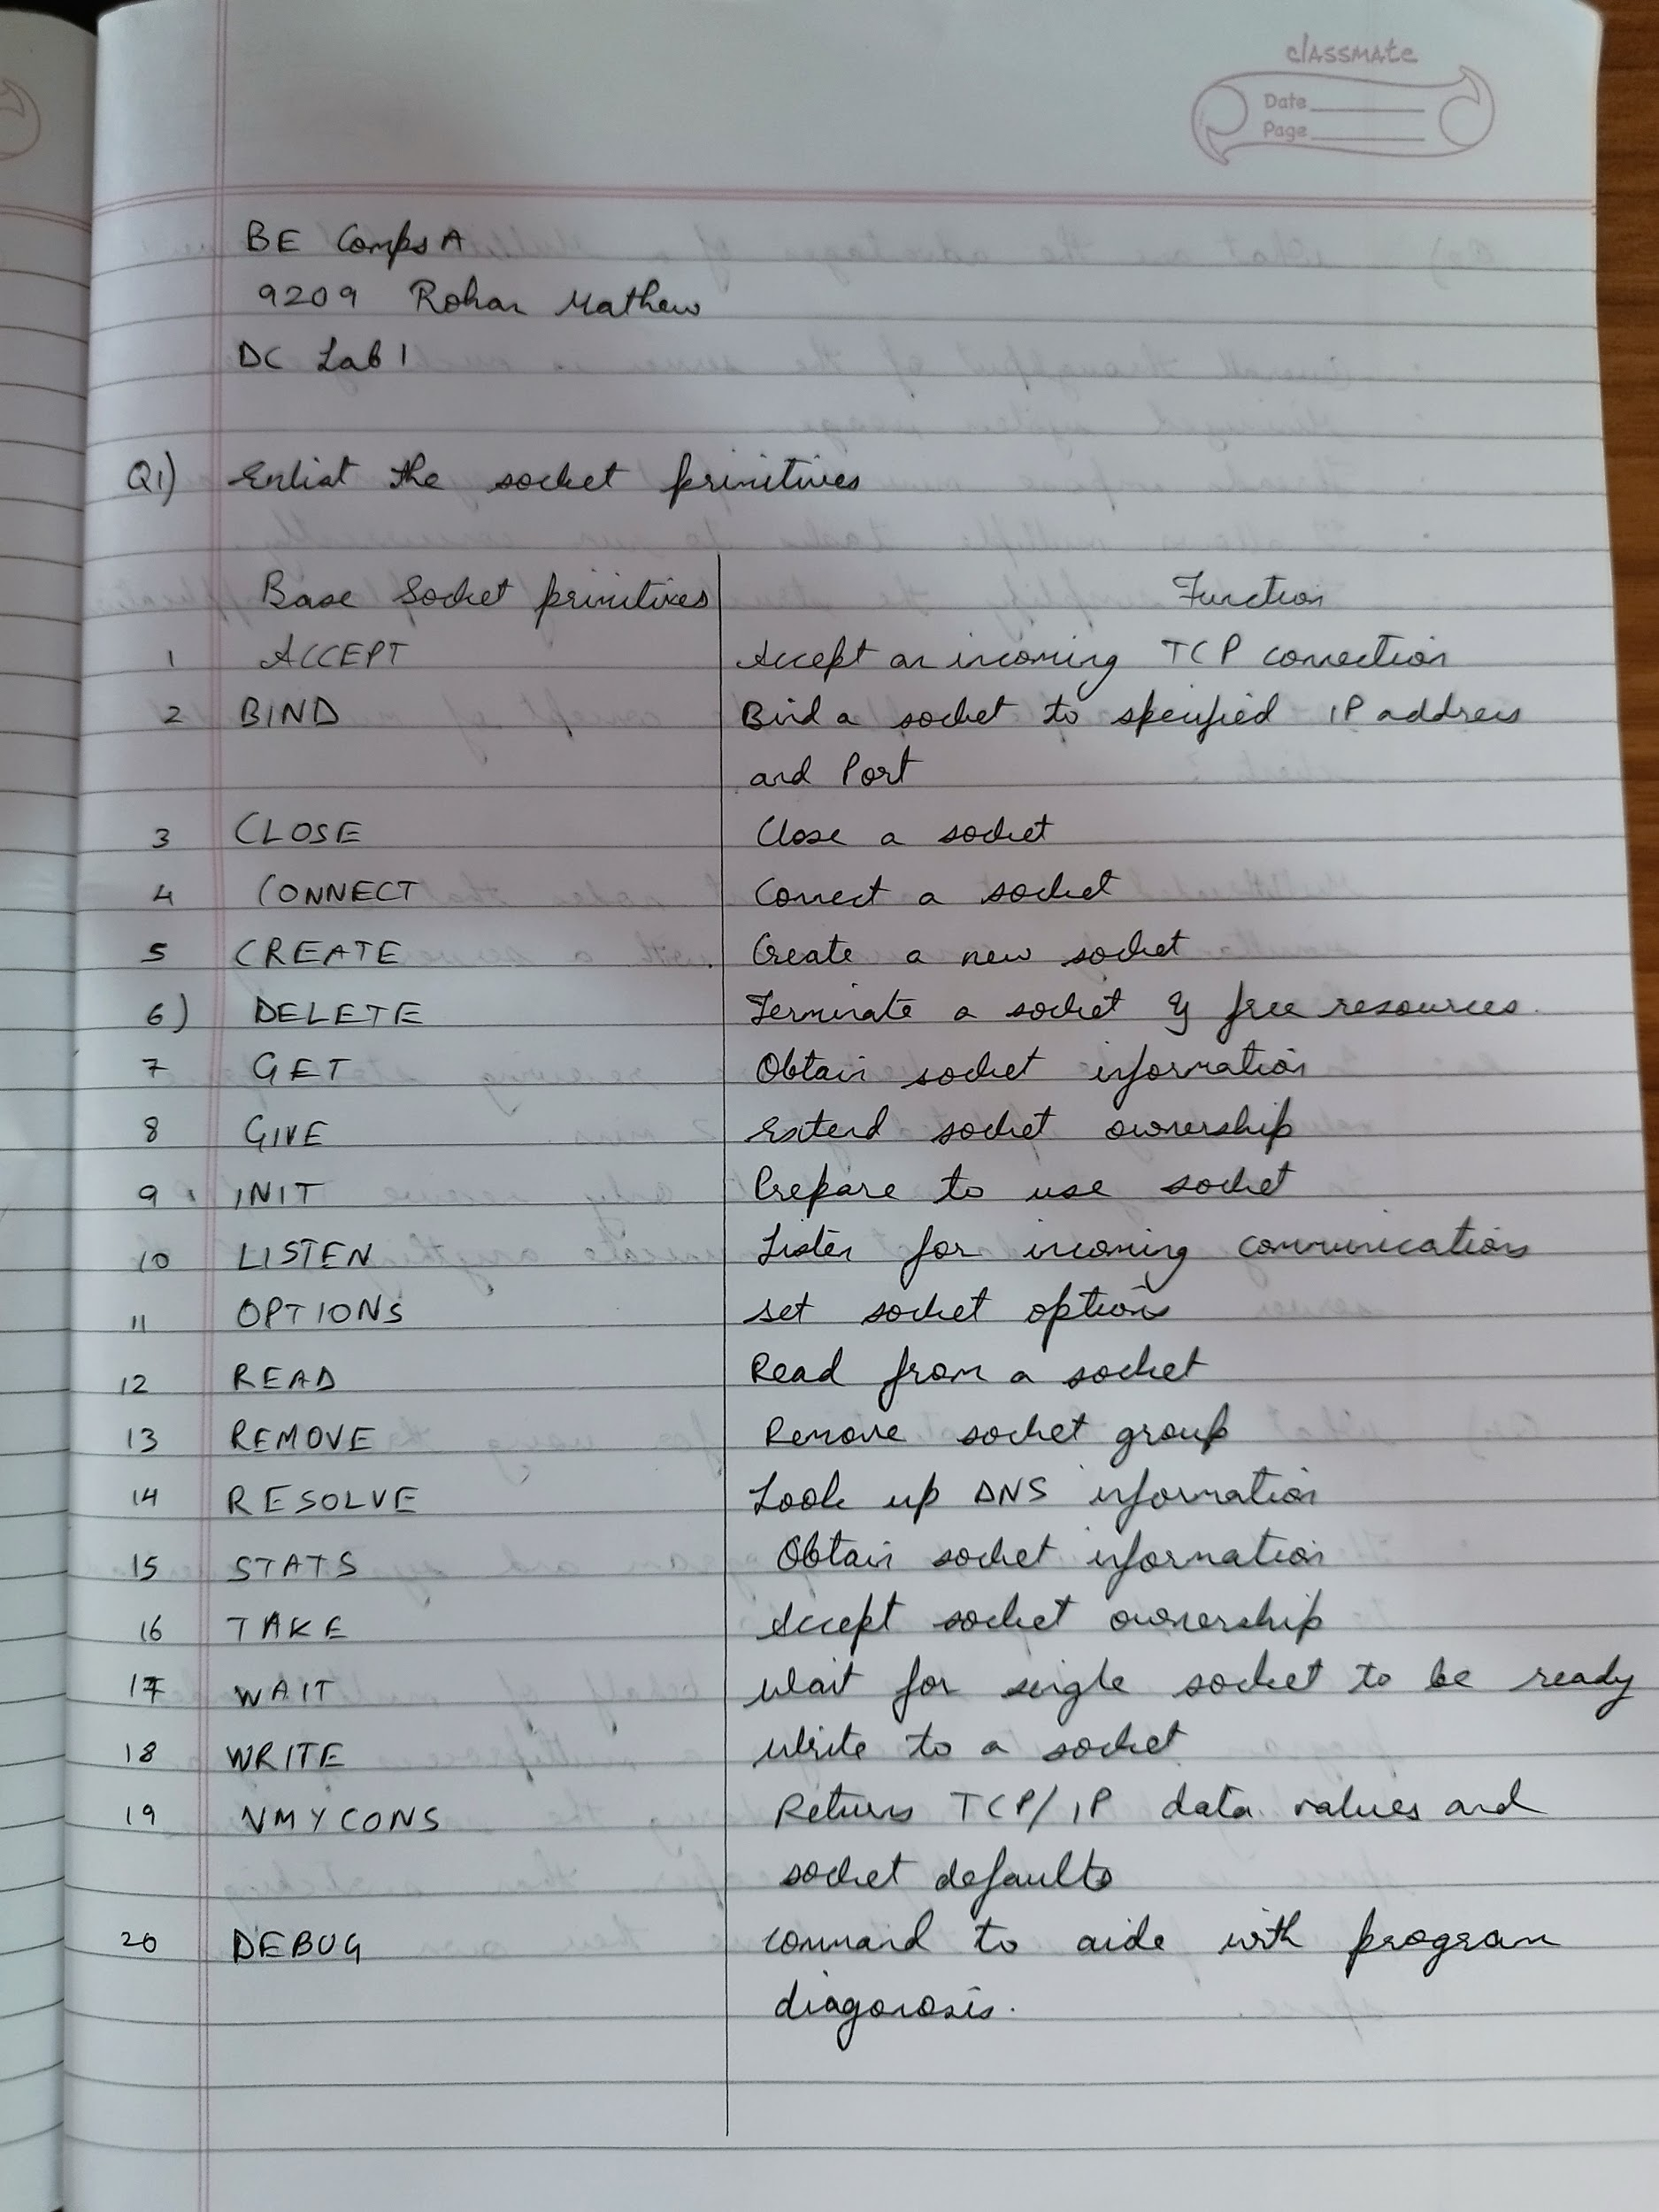 classmate
Date
Page
BE Comps A
9209 Rohan Mathew
DC Lab 1
Q1) Enlist the socket primitives
Base Socket primitives Function
1 ACCEPT Accept an incoming TCP connection
2 BIND Bind a socket to specified IP address
and Port
3 CLOSE Close a socket
4 CONNECT Connect a socket
5 CREATE Create a new socket
6) DELETE Terminate a socket & free resources.
7 GET Obtain socket information
8 GIVE Extend socket ownership
9 INIT Prepare to use socket
10 LISTEN Listen for incoming communications
11 OPTIONS set socket options
12 READ Read from a socket
13 REMOVE Remove socket group
14 RESOLVE Look up DNS information
15 STATS Obtain socket information
16 TAKE Accept socket ownership
17 WAIT Wait for single socket to be ready
18 WRITE Write to a socket
19 VMYCONS Returns TCP/IP data values and
socket defaults
20 DEBUG command to aide with program
diagonosis.